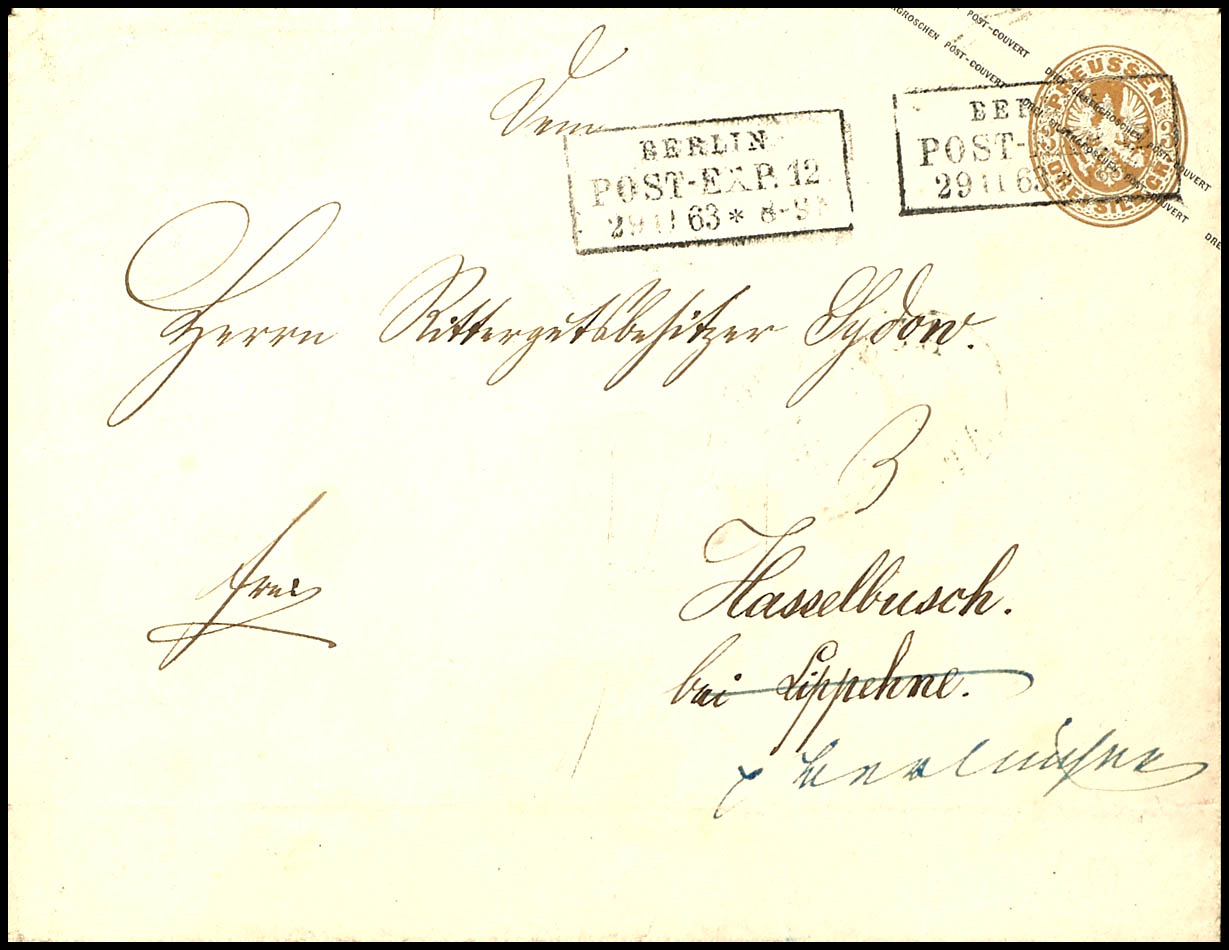 DREI SILBERGROSCHEN POST-COUVERT
PREUSSEN
3 3
DREI SILB. GROSCH.
BERLIN
POST-EXP. 12
29 11 63 * 8-9
BER
POST-
29 11 63 *
Dem
Herrn Rittergutsbesitzer Sydow.
3
frei
Hasselbusch.
bei Lippehne.